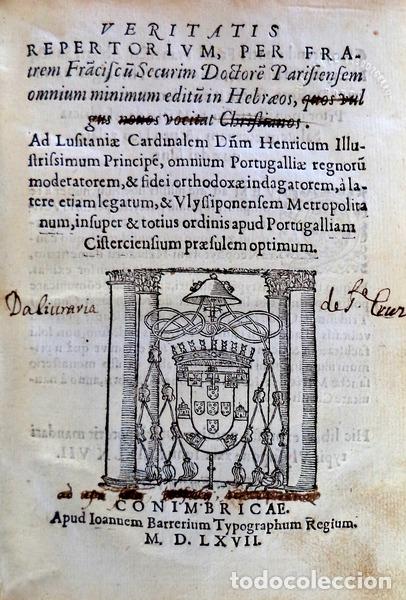 VERITATIS
REPERTORIVM, PER FRA-
trem Frãciscũ Securim Doctorẽ Parisiensem
omnium minimum editũ in Hebræos, quos vul
gus nouos vocitat Christianos.
Ad Lusitaniæ Cardinalem Dñm Henricum Illu
strissimum Principẽ, omnium Portugalliæ regnorũ
moderatorem, & fidei orthodoxæ indagatorem, à la-
tere etiam legatum, & Vlyssiponensem Metropolita
num, insuper & totius ordinis apud Portugalliam
Cisterciensium præsulem optimum.
Da liuraria de Sta Cruz
CONIMBRICAE.
Apud Ioannem Barrerium Typographum Regium.
M. D. LXVII.
todocoleccion